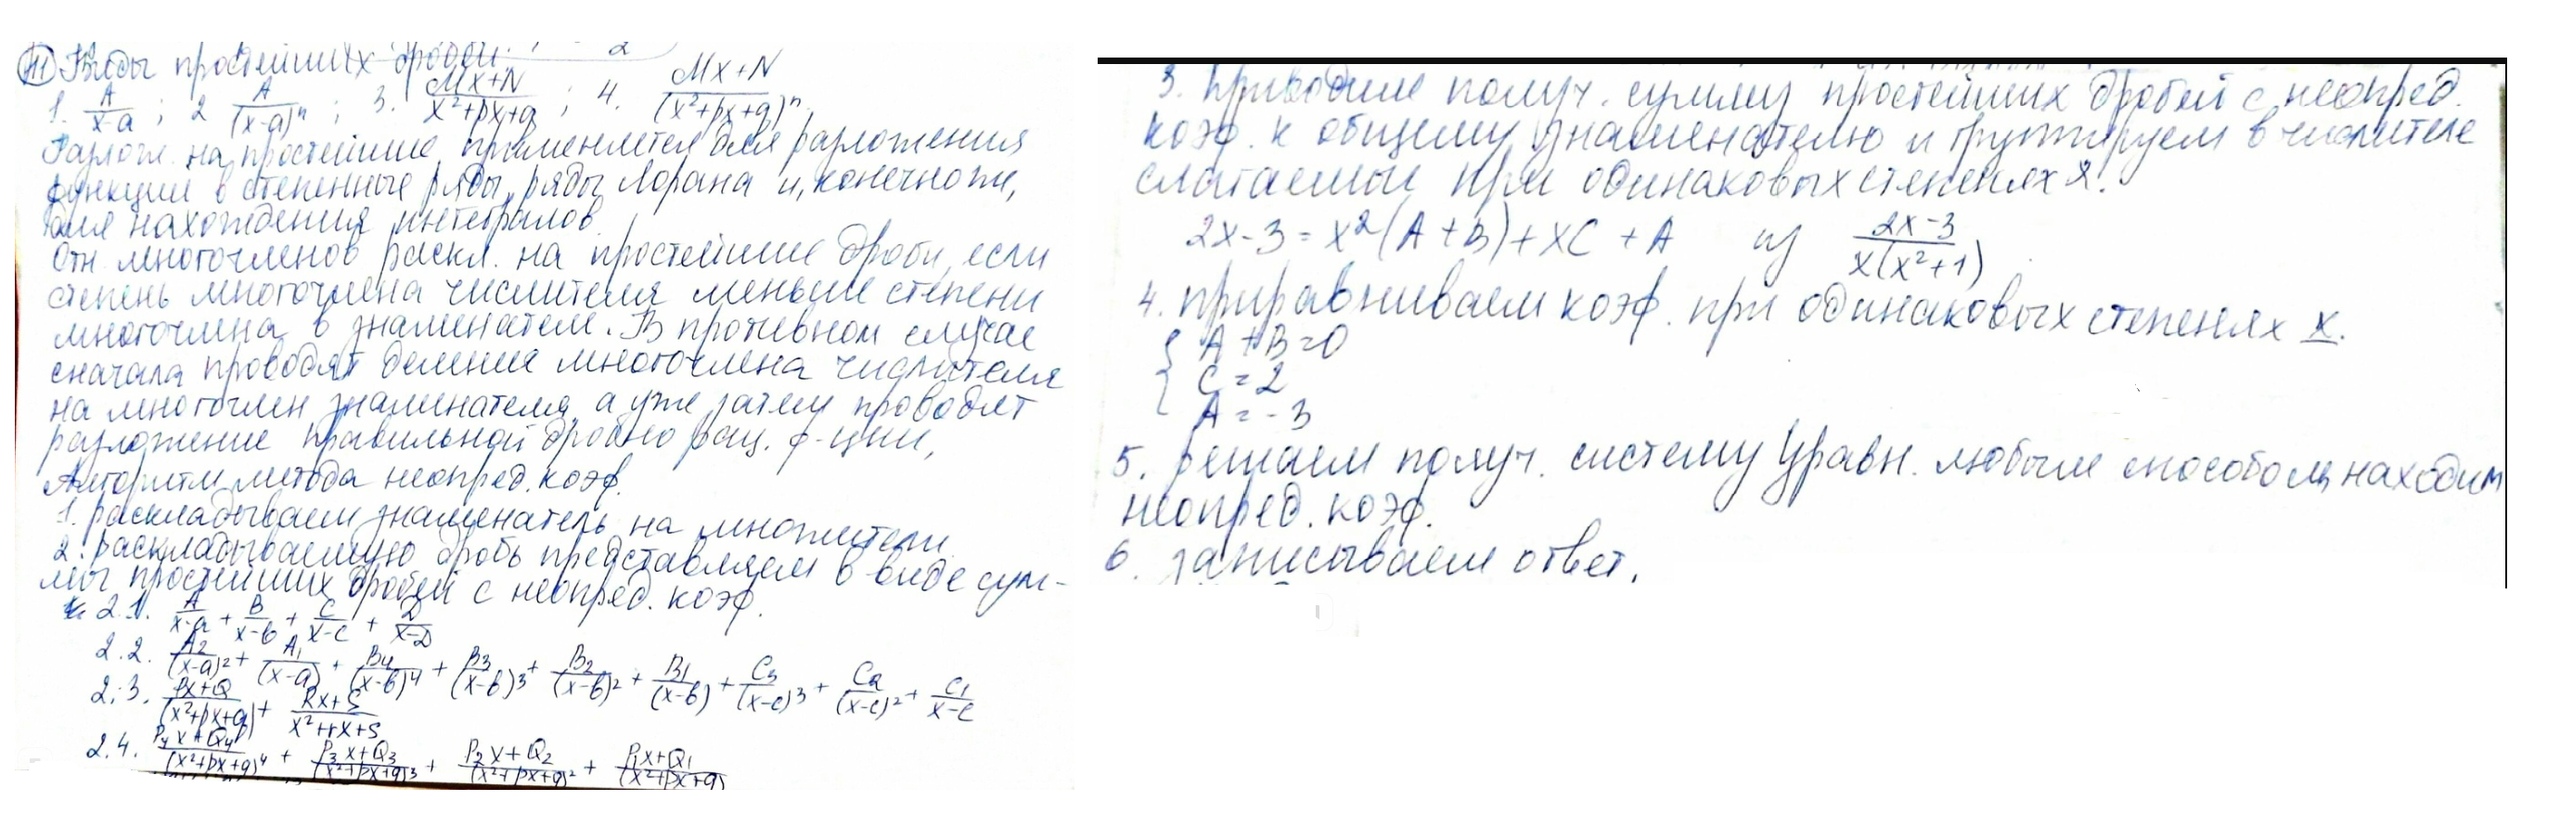 11 Виды простейших дробей.
1. A/(x-a) ; 2 A/(x-a)^n ; 3. (Mx+N)/(x²+px+q) ; 4. (Mx+N)/(x²+px+q)^n
Разлож. на простейшие применяется для разложения
функции в степенные ряды, ряды Лорана и, конечно же,
для нахождения интегралов.
Отн. многочленов раскл. на простейшие дроби, если
степень многочлена числителя меньше степени
многочлена в знаменателе. В противном случае
сначала проводят деление многочлена числителя
на многочлен знаменателя, а уже затем проводят
разложение правильной дробно рац. ф-ции,
Алгоритм метода неопред. коэф.
1. раскладываем знаменатель на множители
2. раскладываемую дробь представляем в виде сум-
мы простейших дробей с неопред. коэф.
2.1. A/(x-a) + B/(x-b) + C/(x-c) + D/(x-D)
2.2. A₂/(x-a)² + A₁/(x-a) + B₄/(x-b)⁴ + B₃/(x-b)³ + B₂/(x-b)² + B₁/(x-b) + C₃/(x-c)³ + C₂/(x-c)² + C₁/(x-c)
2.3. (Px+Q)/(x²+px+q) + (Rx+S)/(x²+rx+s)
2.4. (P₄x+Q₄)/(x²+px+q)⁴ + (P₃x+Q₃)/(x²+px+q)³ + (P₂x+Q₂)/(x²+px+q)² + (P₁x+Q₁)/(x²+px+q)
3. Приводим получ. сумму простейших дробей с неопред.
коэф. к общему знаменателю и группируем в числителе
слагаемые при одинаковых степенях x.
2x-3 = x²(A+B)+xC+A из (2x-3)/(x(x²+1))
4. приравниваем коэф. при одинаковых степенях x.
{ A+B=0
C=2
A=-3
5. решаем получ. систему уравн. любым способом, находим
неопред. коэф.
6. записываем ответ.